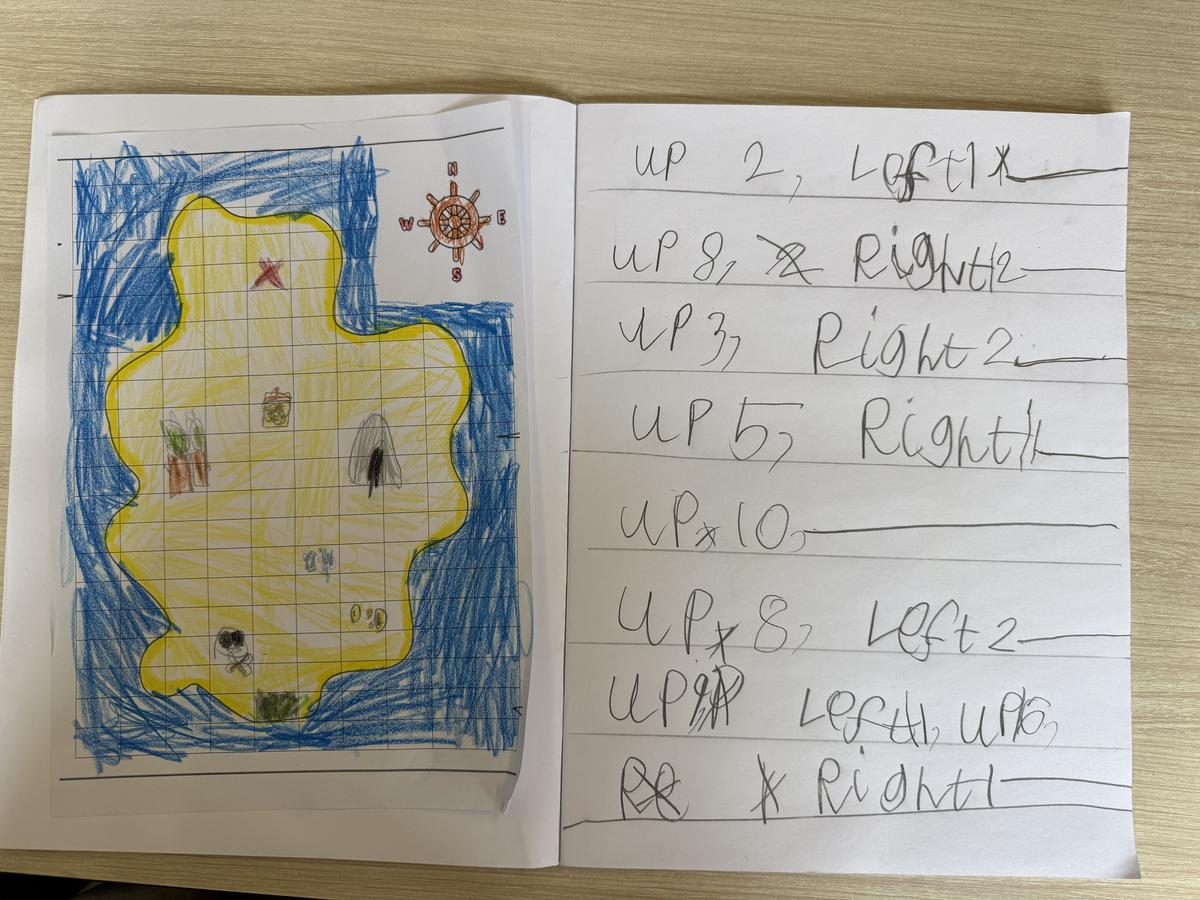 N
W E
S
UP 2, Left 1
UP 8, Right 2
UP 3, Right 2.
UP 5, Right 1
UP 10,
UP 8, Left 2
UP Left 1, UP 6,
Right 1